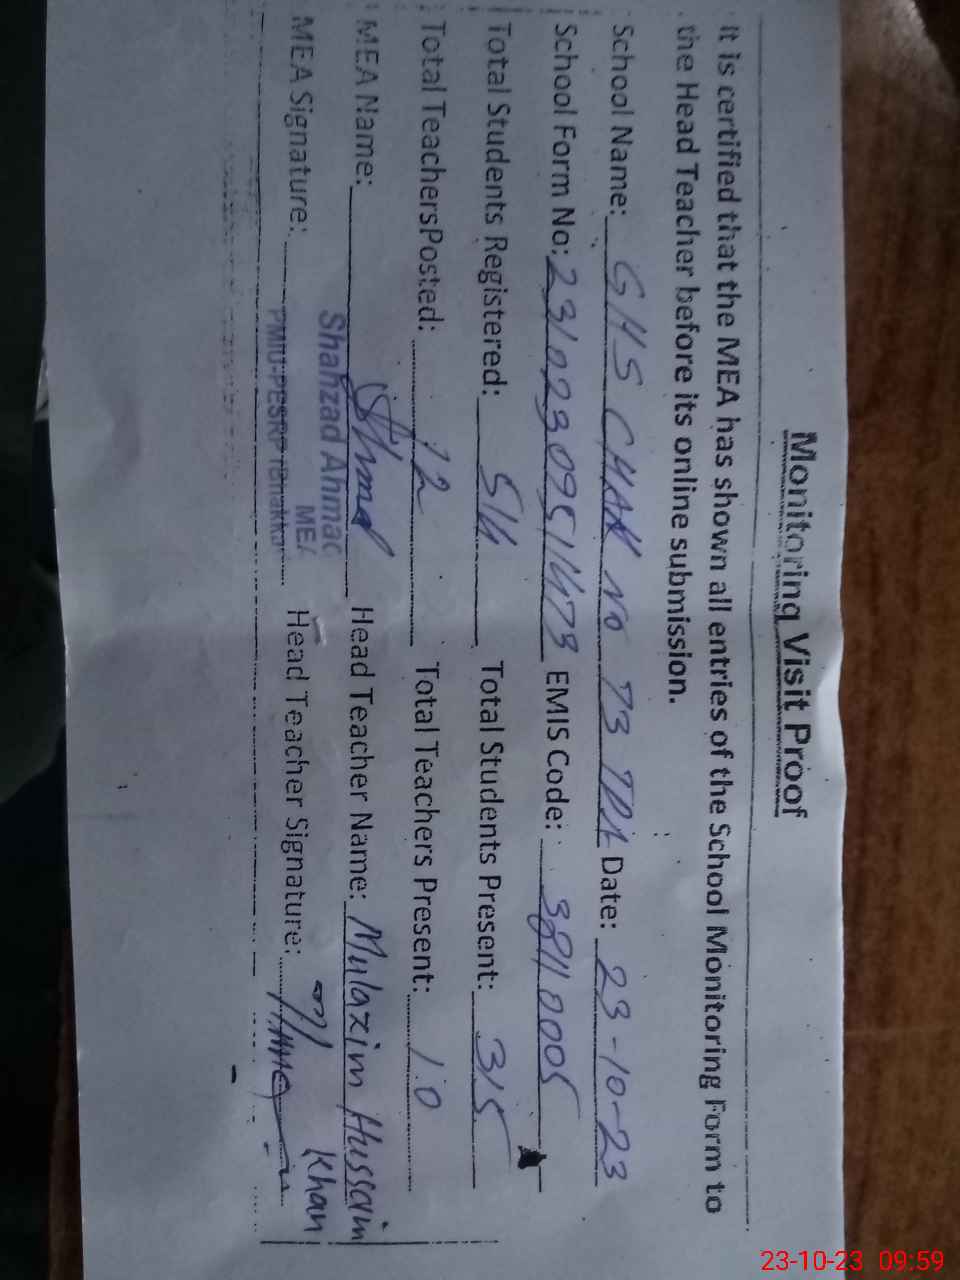 Monitoring Visit Proof
It is certified that the MEA has shown all entries of the School Monitoring Form to
the Head Teacher before its online submission.
School Name: GHS CHAK NO 73 TDA Date: 23-10-23
School Form No: 23102309511473 EMIS Code: 38110005
Total Students Registered: 514 Total Students Present: 315
Total TeachersPosted: 12 Total Teachers Present: 10
MEA Name: Head Teacher Name: Mulazim Hussain
Khan
Shahzad Ahmad
MEA
MEA Signature: PMIU-PESRP (Bhakkar) Head Teacher Signature:
23-10-23 09:59